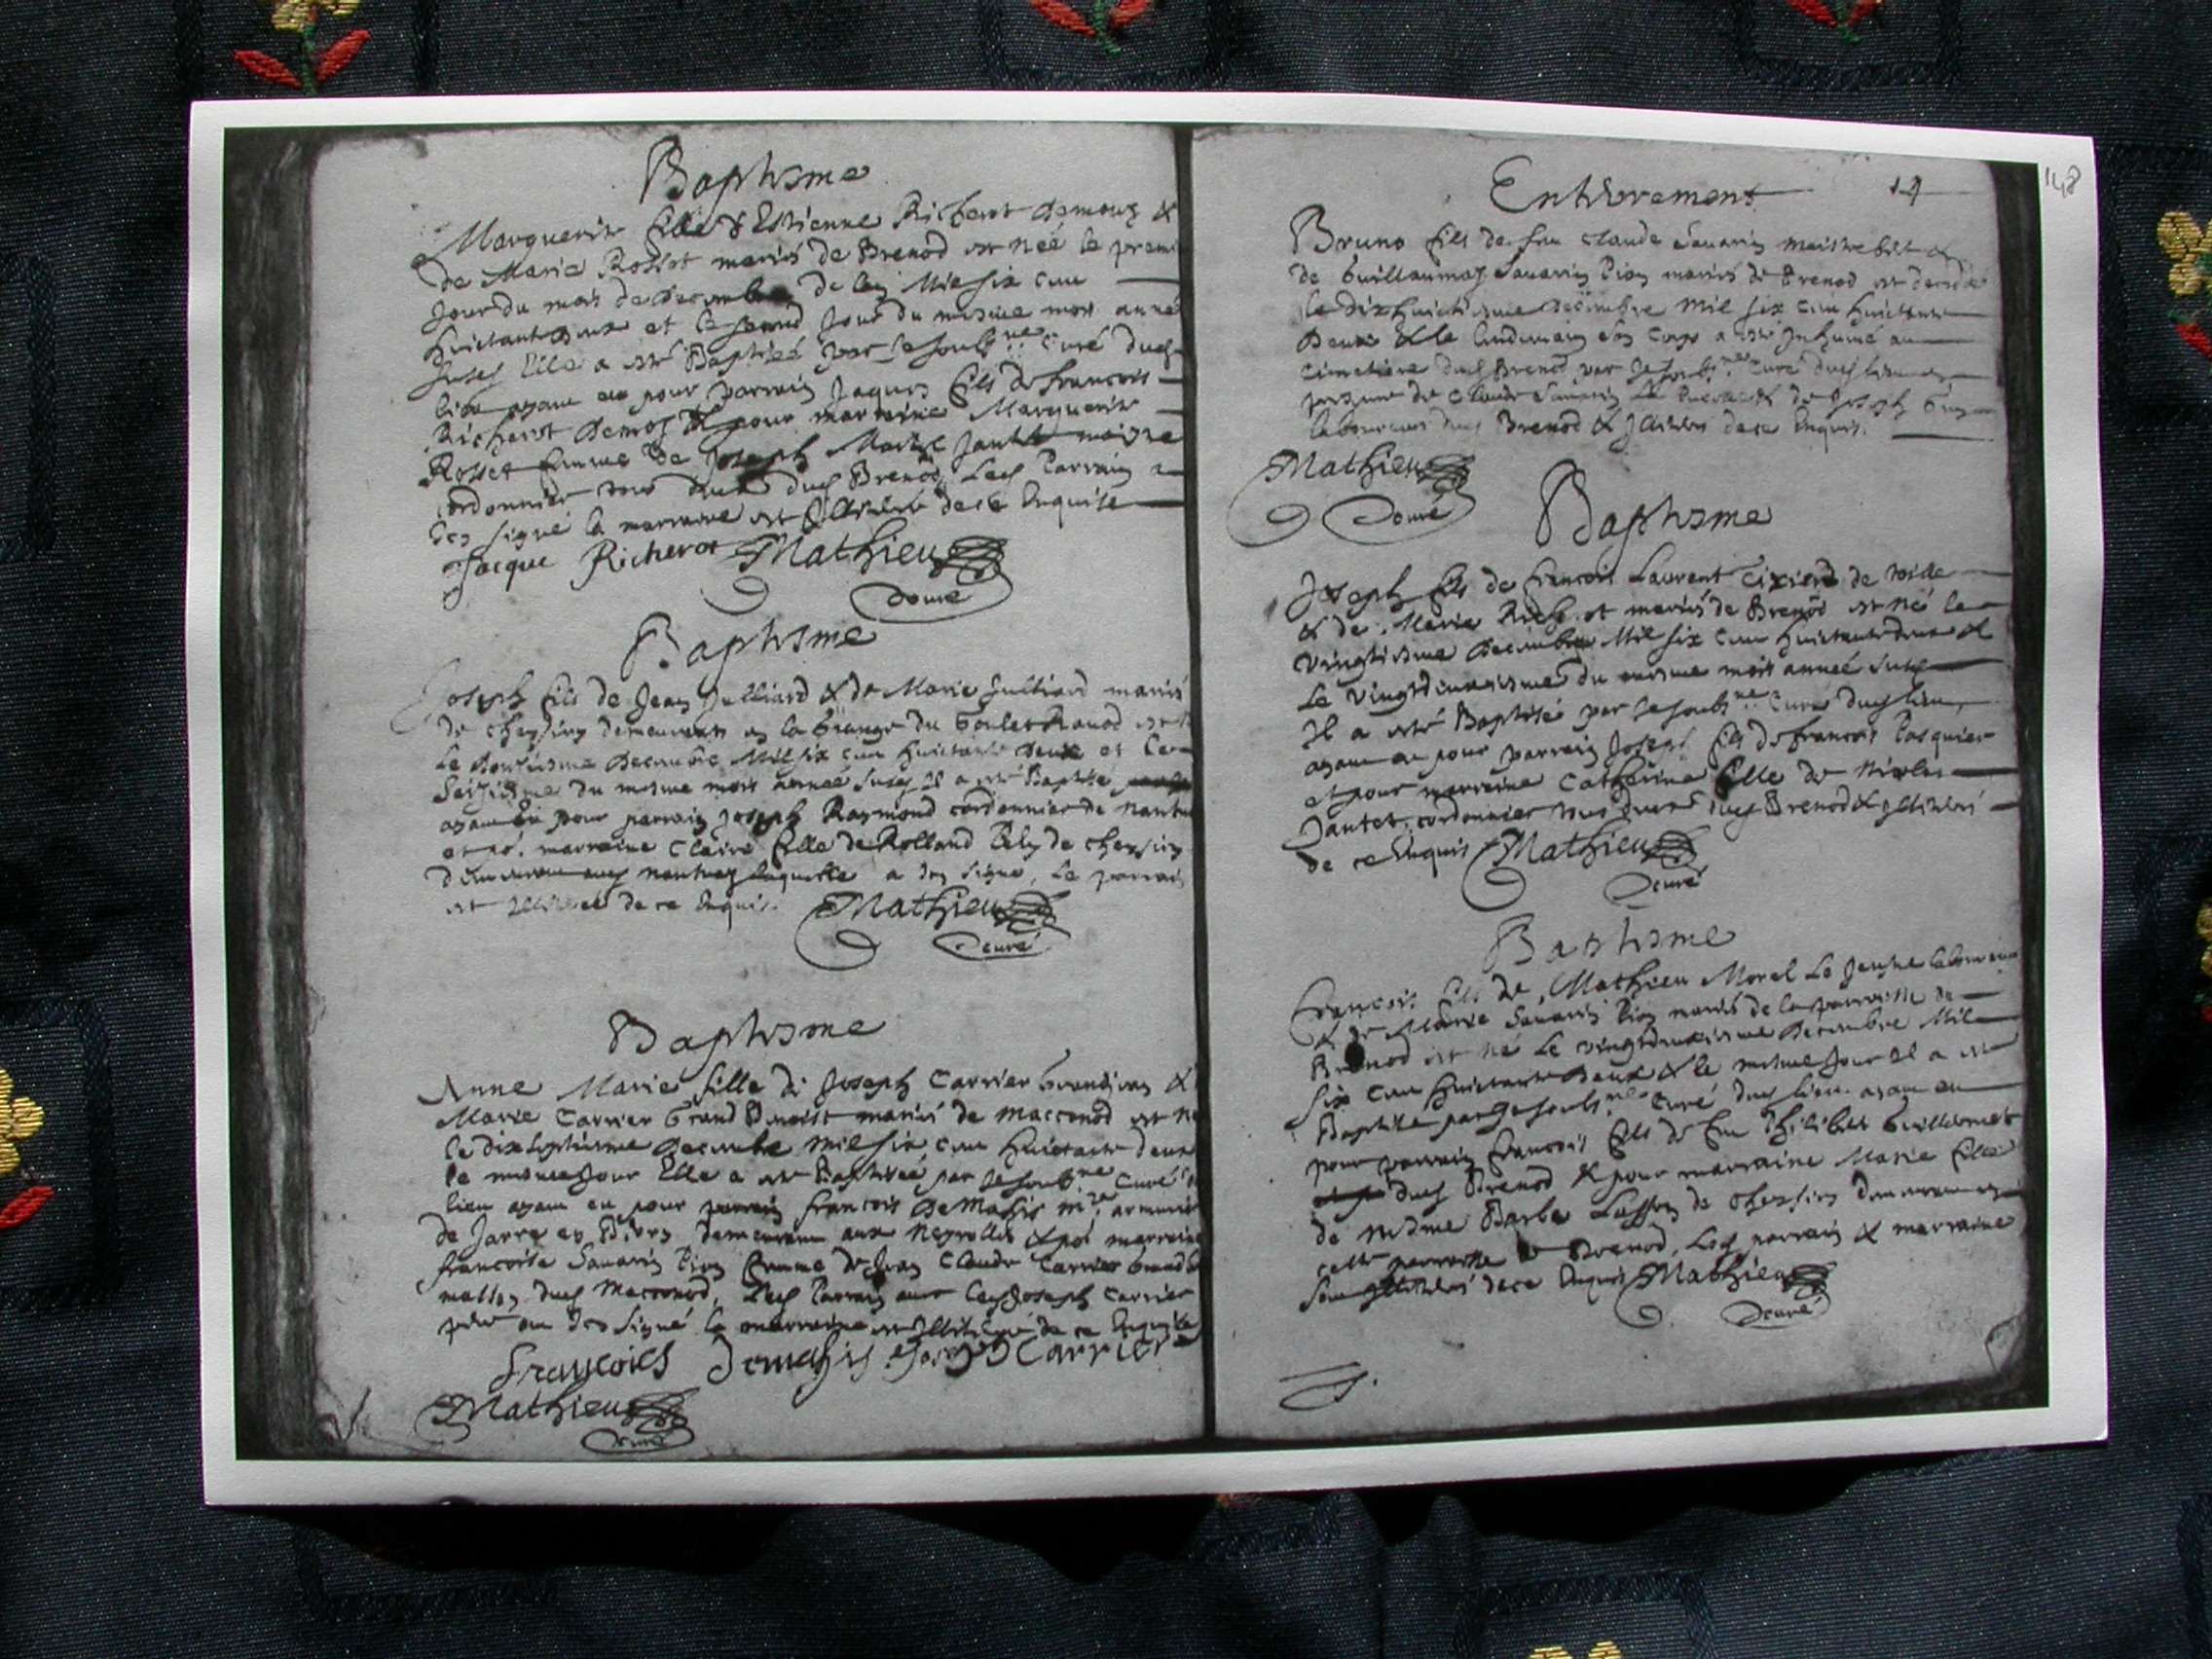 Baptisme
Marguerite fille d'Estienne Richerot Demoug &
de Marie Rosset mariés de Brenod est née le premi
Jour du mois de decembre de lan Mil six cens
huictante deux et le second Jour du mesme mois année
susd Elle a esté Baptisée par Je soubs.né Curé dud
lieu ayant eu pour parrain Jaques fils de francois
Richerot & pour marraine Marguerite
Rosset femme de Joseph Jantet maistre
cordonnier tous deux dud Brenod, Led Parrain a
soy signé la marraine est illiterée de ce Enquise
Jacque Richerot Mathieu
Curé
Baptisme
Joseph fils de Jean Julliard & de Marie Julliard mariés
de chessiry demeurants en la Grange du est
Le decembre Mil six cens huictante deux et le
Seiziesme du mesme mois année susd Il a esté Baptisé
ayant eu pour parrain Joseph Raymond cordonnier de Nantua
et po.r marraine Claire fille de Rolland de chessiry
demeurant aud laquelle a soy signé, Le parrain
est illiteré de ce Enquis. Mathieu
Curé
Baptisme
Anne Marie fille de Joseph Carrier &
Marie Carrier Grand Benoist mariés de Macconod est née
le dixseptiesme decembre mil six cens huictante deux
le mesme Jour Elle a esté Baptisée par Je soubs.né Curé
lieu ayant eu pour parrain francois Demasis m.re armurier
de demeurant aux Neyrolles & po.r marraine
francoise Savarin Pion femme de Jean Claude Carrier Grand
masson dud Macconod, Led Parrain avec Led Joseph Carrier
pere ont soy signé la marraine est illiterée de ce Enquise
francoies Demasis Joseph Carrier
Mathieu
Curé
Enterrement 14
148
Bruno fils de feu Claude Savarin &
de Guillaumaz Savarin Pion mariés de Brenod est decedé
le dixhuictiesme decembre mil six cens huictante
deux & le lendemain son corps a esté Inhumé au
cimetiere dud Brenod par Je soubs.né Curé dud lieu en
presence de Claude Savarin & de Joseph
laboureurs dud Brenod & Illiterés de ce Enquis.
Mathieu
Curé
Baptisme
Joseph fils de francois Laurent Tixier de toile
& de Marie Richerot mariés de Brenod est né le
vingtiesme decembre Mil six cens huictante deux &
Le vingtdeuxiesme du mesme mois année susd
Il a esté Baptisé par Je soubs.né Curé dud lieu,
ayant eu pour parrain Joseph fils de francois Pasquier
et pour marraine Catherine fille de Nicolas
Jantet cordonnier tous deux dud Brenod & illiterés
de ce Enquis Mathieu
Curé
Baptisme
francois fils de Mathieu Morel Le Jeusne laboureur
& de Marie Savarin Pion mariés de la parroisse de
Brenod est né Le vingtdeuxiesme decembre Mil
six cens huictante deux & le mesme Jour Il a esté
Baptisé par Je soubs.né Curé dud lieu ayant eu
pour parrain francois fils de feu Philibert Guillermet
dud Brenod & pour marraine Marie fille
de Barbe de chessiry demeurant en
cette parroisse de Brenod, Lesd parrain & marraine
sont illiterés de ce Enquis Mathieu
Curé